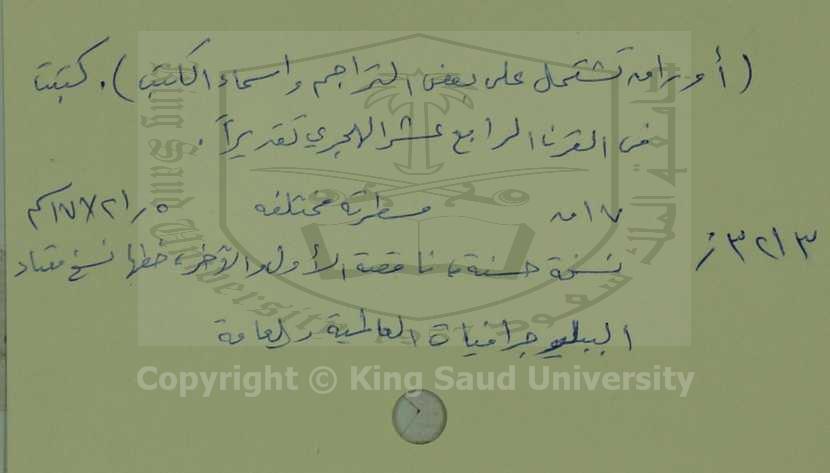 (أوراق تشتمل على بعض التراجم واسماء الكتب). كتبت
في القرن الرابع عشر الهجري تقديراً.
١٧ ق مسطرته مختلفه ٢١٫٥×١٧سم
٣٢١٣ / ز
نسخة حسنة، ناقصة الأول والآخر، خطها نسخ معتاد
الببليوجرافيات العالمية والعامة
Copyright © King Saud University
King Saud University